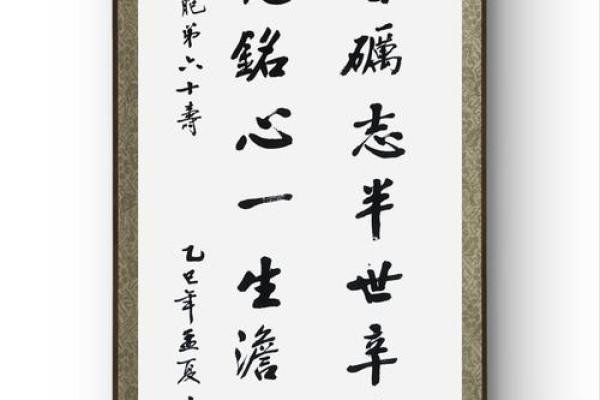 礪志半世辛
銘心一生澹
胞弟六十壽 乙巳年孟夏